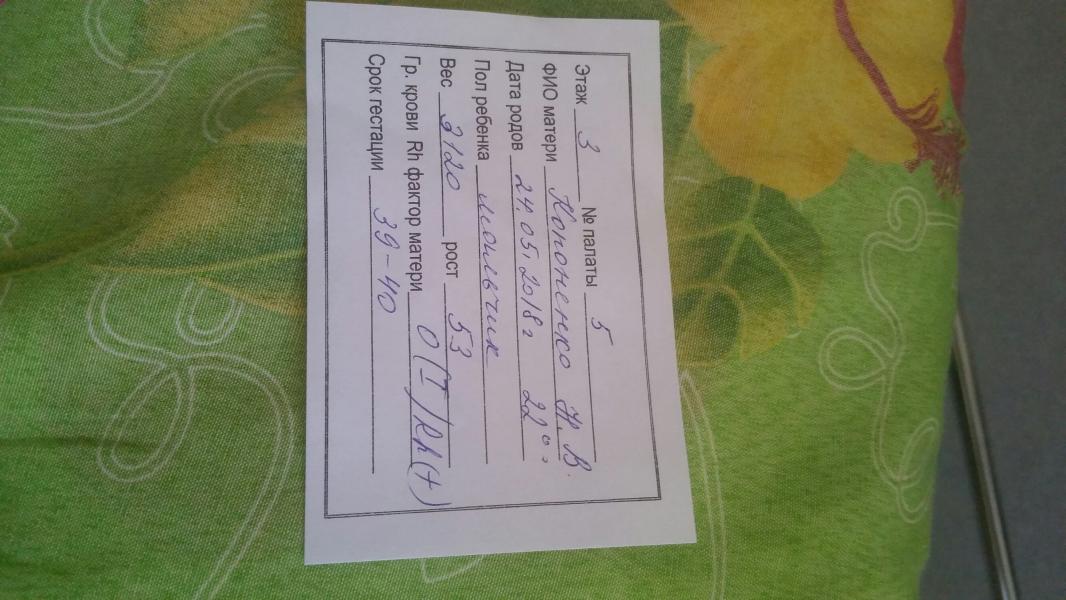 Этаж 3 № палаты 5
ФИО матери Кононенко Н. В.
Дата родов 24.05.2018г 22⁰⁰
Пол ребенка мальчик
Вес 3120 рост 53
Гр. крови Rh фактор матери 0(I) Rh(+)
Срок гестации 39-40